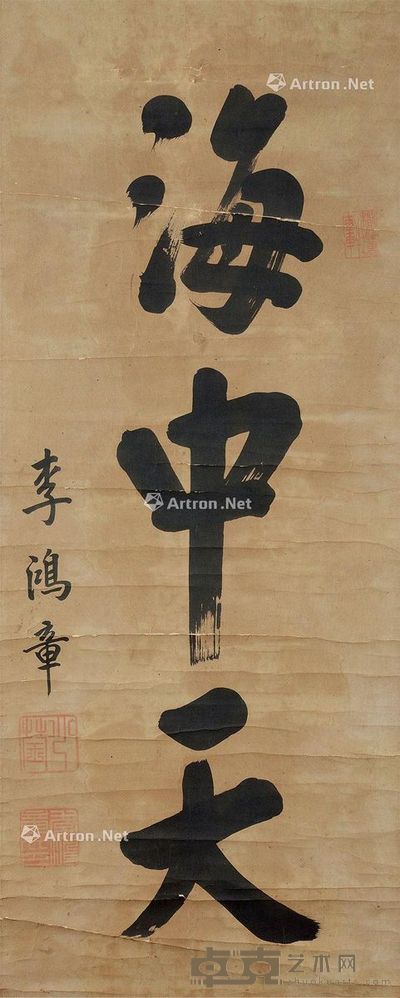 海中天
李鴻章
Artron.Net
Artron.Net
Artron.Net
卓克艺术网